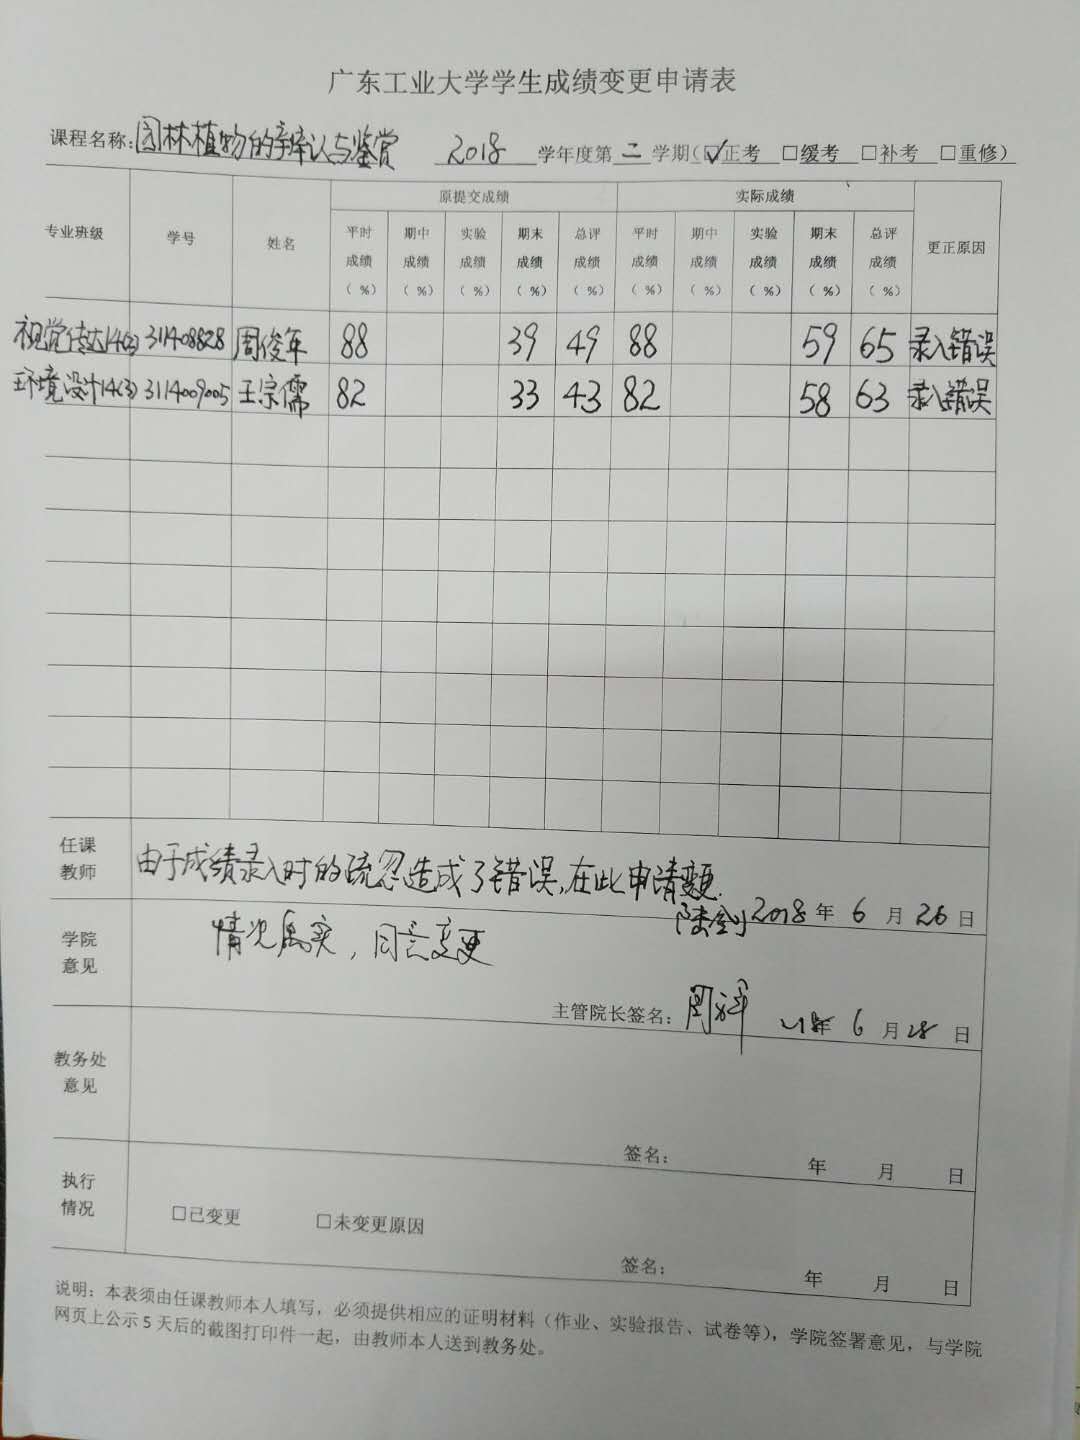 广东工业大学学生成绩变更申请表
课程名称:园林植物的辨认与鉴赏 2018 学年度第 二 学期(☑正考 □缓考 □补考 □重修)
原提交成绩 实际成绩
专业班级 学号 姓名 平时成绩(%) 期中成绩(%) 实验成绩(%) 期末成绩(%) 总评成绩(%) 平时成绩(%) 期中成绩(%) 实验成绩(%) 期末成绩(%) 总评成绩(%) 更正原因
视觉传达14(2) 311408828 周俊年 88 39 49 88 59 65 录入错误
环境设计14(3) 3114009005 王宗儒 82 33 43 82 58 63 录入错误
任课教师 由于成绩录入时的疏忽造成了错误,在此申请变更.
2018 年 6 月 26 日
学院意见 情况属实,同意变更
主管院长签名: 18年 6 月 28 日
教务处意见
签名: 年 月 日
执行情况 □已变更 □未变更原因
签名: 年 月 日
说明:本表须由任课教师本人填写,必须提供相应的证明材料(作业、实验报告、试卷等),学院签署意见,与学院
网页上公示 5 天后的截图打印件一起,由教师本人送到教务处。